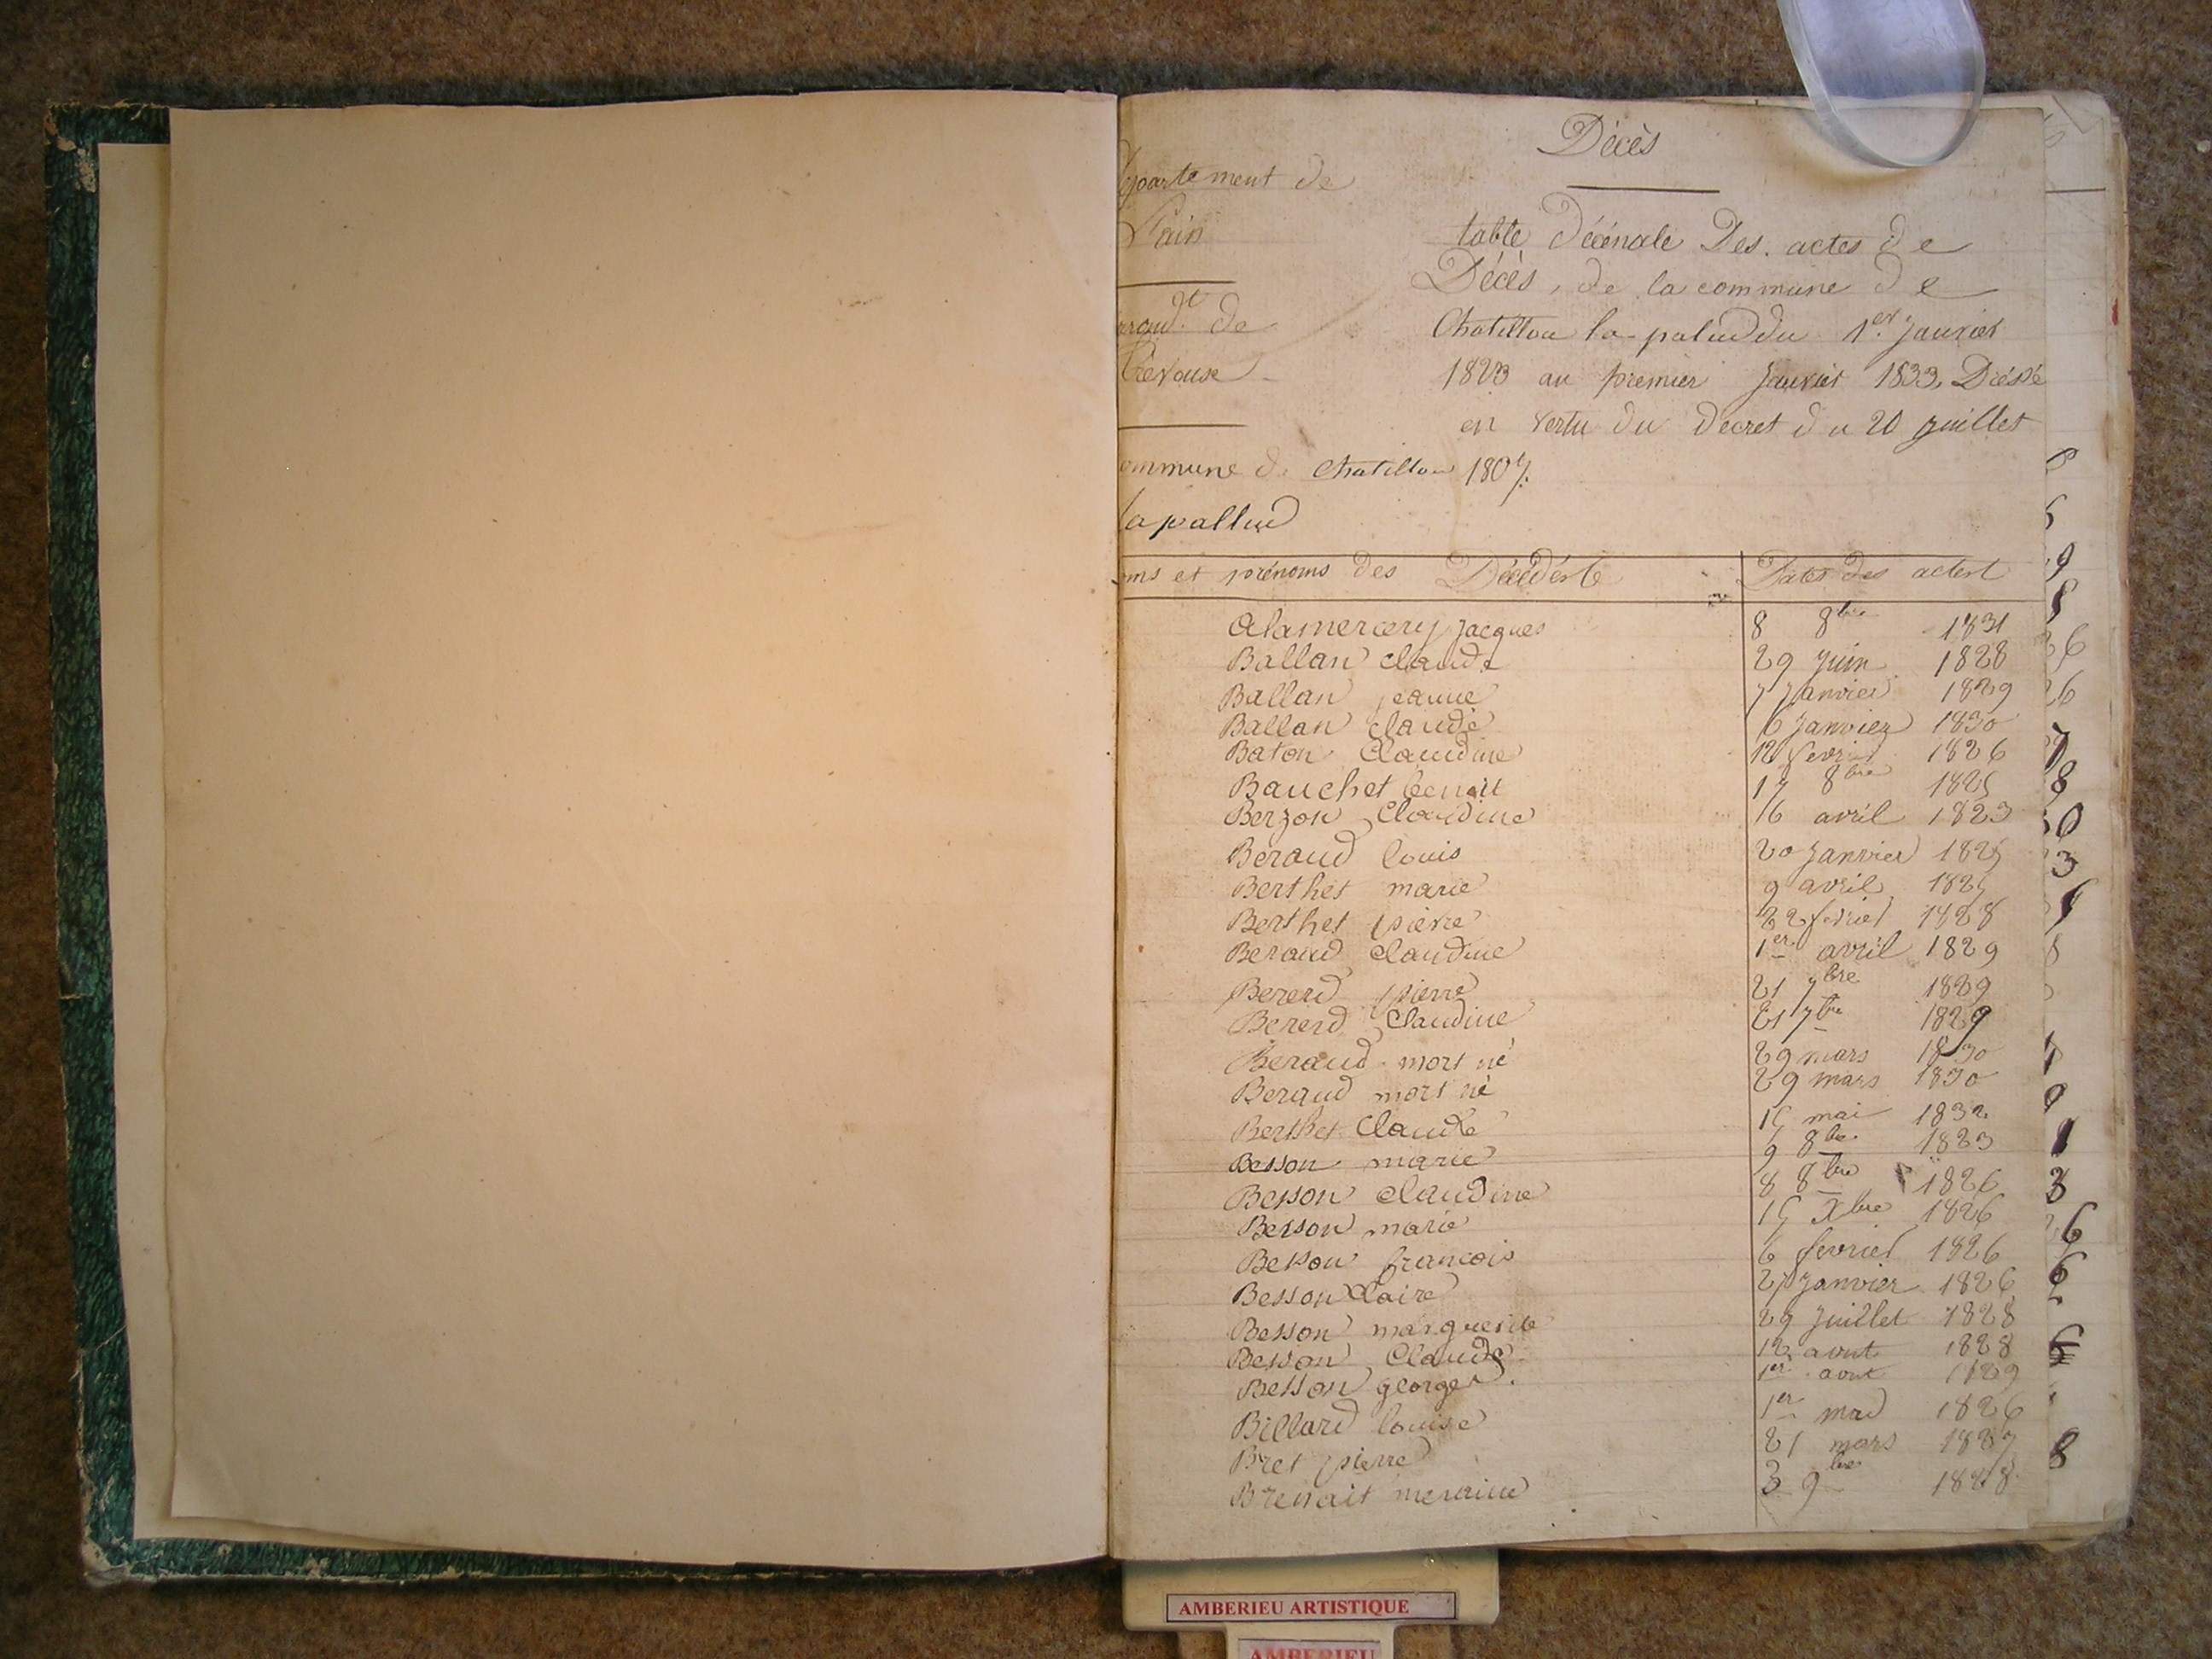 Décès
épartement de
l'ain
table Décénale Des actes de
Décès, de la commune de
arrond.t de
Chatillon la palud du 1.er Janvier
Trévoux
1823 au premier Janvier 1833, Dréssé
en vertu du Decret du 20 juillet
ommune de Chatillon 1807.
lapallud
oms et prénoms des Décédés Dates des actes
Alamercery jacques 8 8bre 1831
Ballan claude 29 juin 1828
Ballan jeanne 7 Janvier 1829
Ballan claude 6 Janvier 1830
Baton Claudine 12 fevrier 1826
Bauchet benoit 17 8bre 1825
Berzon Claudine 16 avril 1823
Beraud louis 20 Janvier 1825
Berthet marie 9 avril 1825
Berthet pierre 22 fevrier 1828
Beraud claudine 1er avril 1829
Bererd pierre 21 7bre 1829
Bererd Claudine 21 7bre 1829
Beraud mort né 29 mars 1830
Beraud mort né 29 mars 1830
Berthet Claude 15 mai 1832
Besson marie 9 8bre 1823
Besson claudine 8 8bre 1826
Besson marie 15 Xbre 1826
Besson francois 6 fevrier 1826
Besson Claire 27 Janvier 1826
Besson marguerite 29 Juillet 1828
Besson Claude 12 aout 1828
Besson george 1er aout 1829
Billard louise 1er 1826
Bret pierre 21 mars 1827
3 9bre 1828
AMBERIEU ARTISTIQUE
AMBERIEU